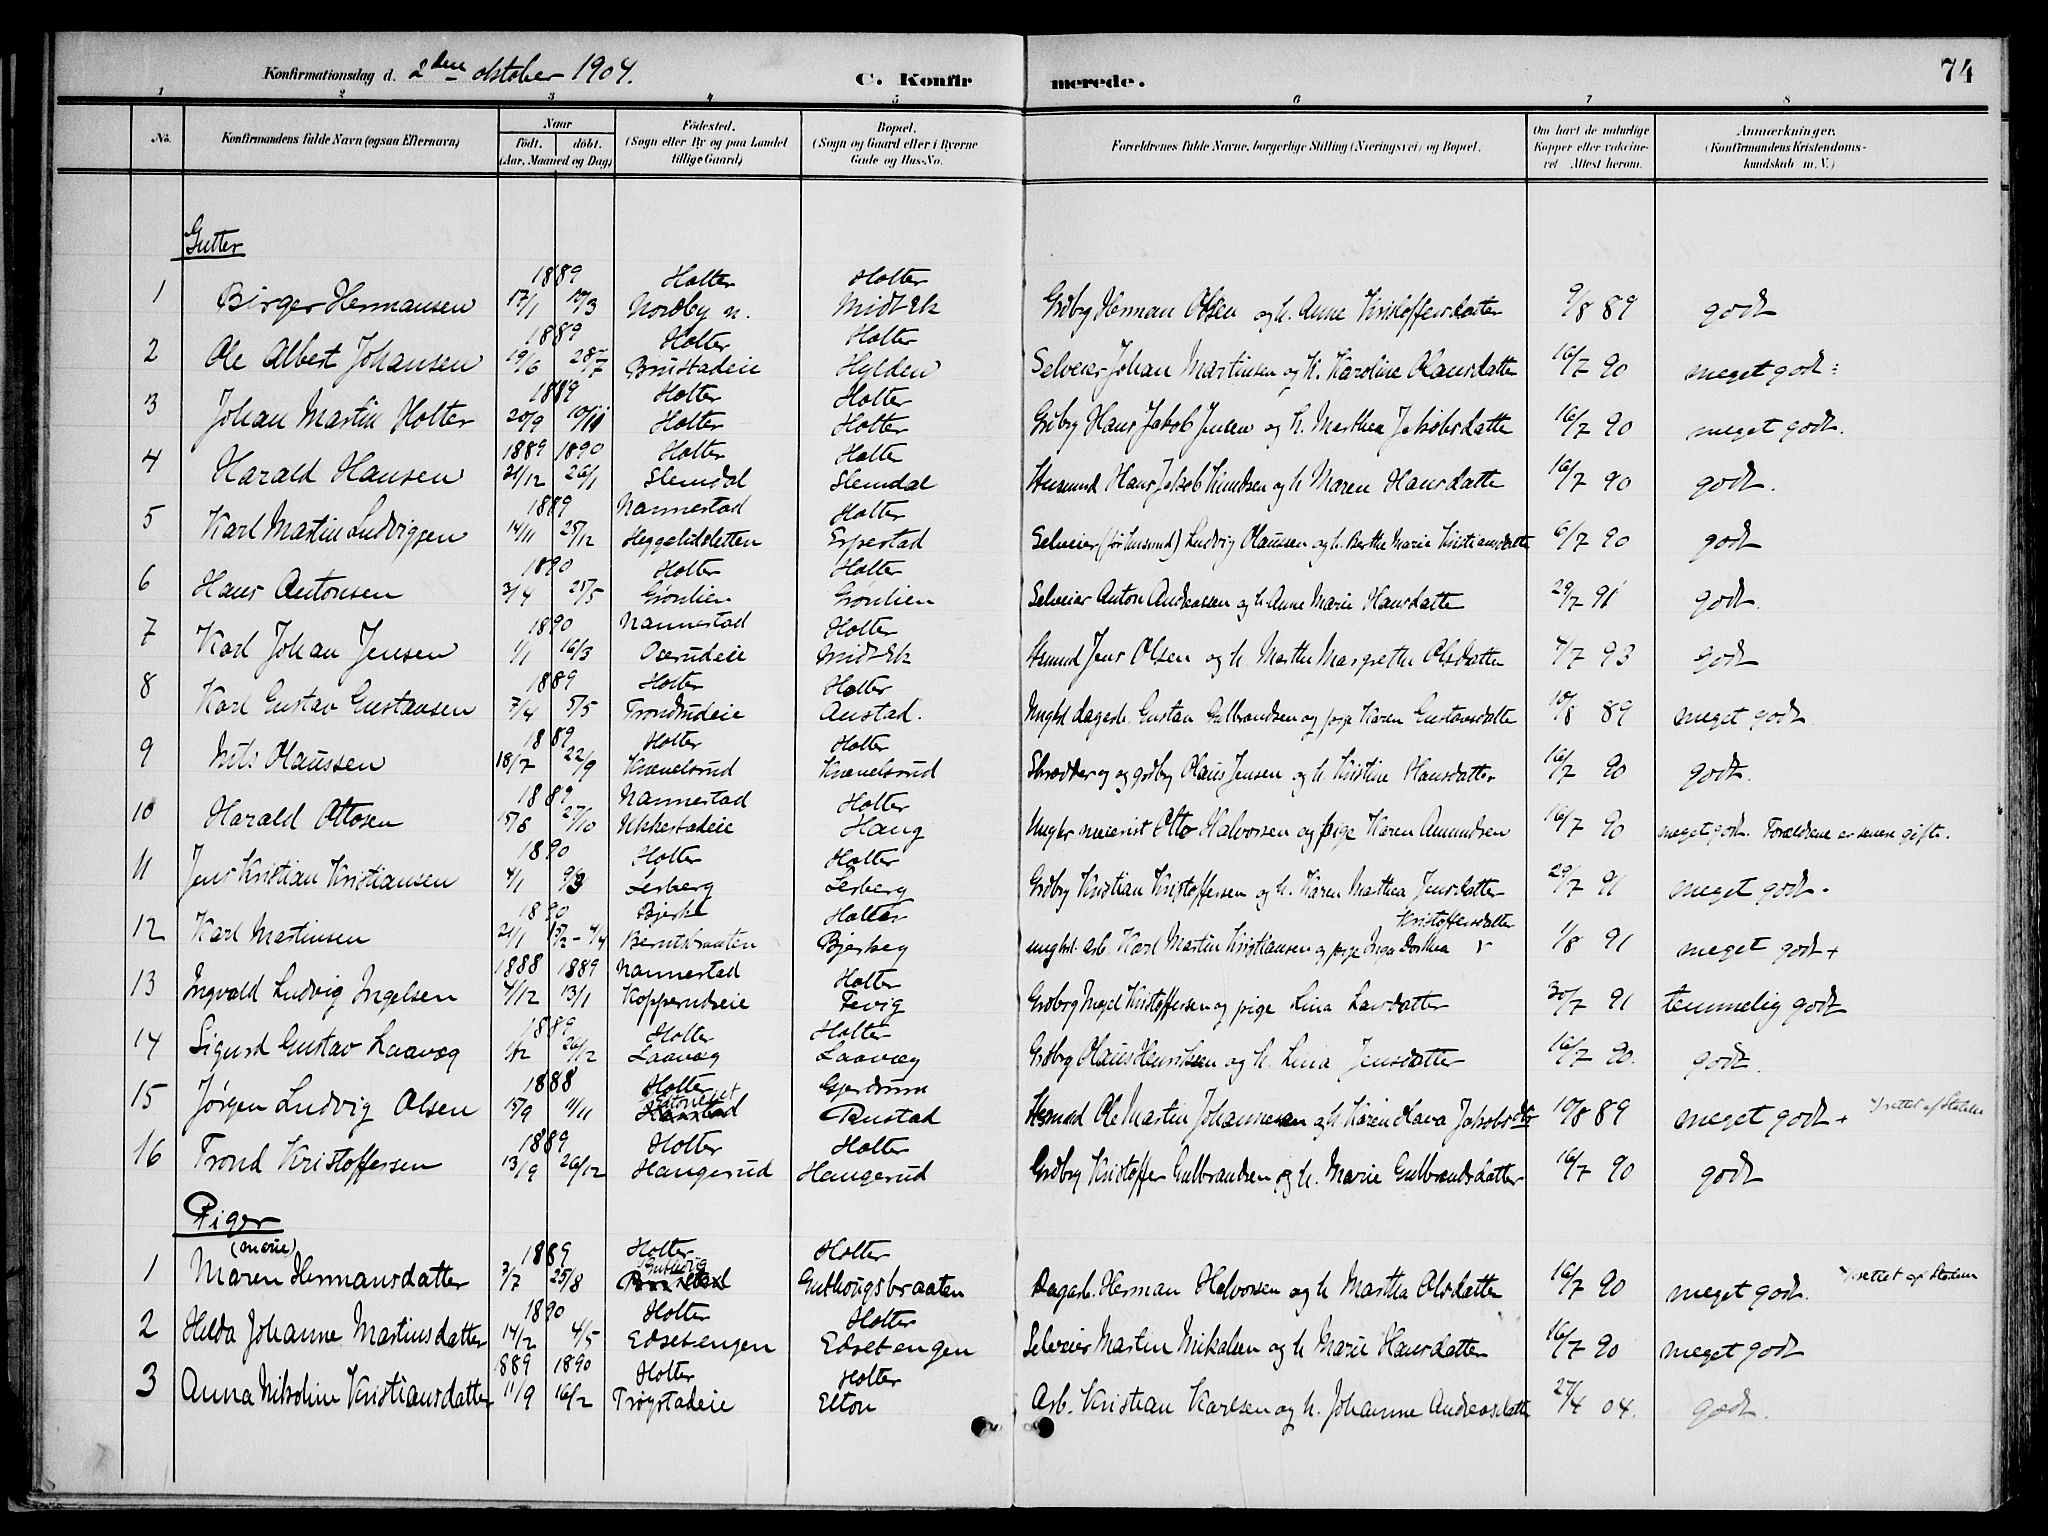 74
Konfirmationsdag d. 2den oktober 1904. C. Konfirmerede.
1 2 3 4 5 6 7 8
No. Konfirmandens fulde Navn (ogsaa Efternavn) Naar født. døbt. (Aar, Maaned og Dag) Fødested. (Sogn eller By og paa Landet tillige Gaard) Bopæl. (Sogn og Gaard eller i Byerne Gade og Hus-No. Forældrenes fulde Navne, borgerlige Stilling (Næringsvei) og Bopæl. Om havt de naturlige Kopper eller vakcineret Attest herom. Anmærkninger. (Konfirmandens Kristendomskundskab m. V.)
Gutter
1889 Holter Holter
1 Birger Hermansen 17/1 10/3 Nordby n. Midt-Ek Grdbrg Herman Olsen og h. Anne Kristoffersdatter 9/8 89 godt
1889 Holter Holter
2 Ole Albert Johansen 19/6 28/7 Brustadeie Hylden Selveier Johan Martinsen og h. Karoline Olausdatter 16/7 90 meget godt
1889 Holter Holter
3 Johan Martin Holter 20/9 10/11 Holter Holter Grdbrg Hans Jakob Jensen og h. Marthea Jakobsdatter 16/7 90 meget godt.
1889 1890 Holter Holter
4 Harald Hansen 21/12 26/1 Slemdal Slemdal Husmand Hans Jakob Knudsen og h Maren Hansdatter 16/7 90 godt.
1889 Nannestad Holter
5 Karl Martin Ludvigsen 14/11 25/12 Heggelidsletten Erpestad Selveier (før husmd) Ludvig Olaussen og h. Berthe Marie Kristiansdatter 6/7 90 godt
1890 Holter Holter
6 Hans Antonsen 3/4 25/5 Grønlien Grønlien Selveier Anton Andreassen og h Anne Marie Hansdatter 29/7 91 godt.
1890 Nannestad Holter
7 Karl Johan Jensen 1/1 16/3 Midt-Ek Husmd Jens Olsen og h. Marthe Margrethe Olsdatter 4/7 93 godt
1889 Holter Holter
8 Karl Gustav Gustavsen 7/4 5/5 Trondrudeie Austad. Ungkl dagarb. Gustav Gulbrandsen og pige Karen Gustavsdatter 10/8 89 meget godt
1889 Holter Holter
9 Nils Olaussen 18/7 22/9 Knævelsrud Knævelsrud Skrædder og grdbrg Olaus Jensen og h. Kristine Hansdatter 16/7 90 godt.
1889 Nannestad Holter
10 Harald Ottosen 5/8 27/10 Ukkestadeie Haug Ungkr meierist Otto Halvorsen og pige Karen Amundsen 16/7 90 meget godt. Forældrene er senere gifte.
1890 Holter Holter
11 Jens Kristian Kristiansen 4/1 9/3 Lerberg Lerberg Grdbrg Kristian Kristoffersen og h. Karen Marthea Jensdatter 29/7 91 meget godt.
1890 Bjerke Holter Kristoffersdatter
12 Karl Martinsen 21/1 15/2-4/4 Berntsbraaten Bjerkeg ungkl. arb. Karl Martin Kristiansen og pige Inga Dorthea 1/8 91 meget godt +
1888 1889 Nannestad Holter
13 Ingvald Ludvig Ingelsen 4/12 13/1 Kopperudeie Tevig Grdbrg Ingel Kristoffersen og pige Lina Larsdatter 30/7 91 temmelig godt
1889 Holter Holter
14 Sigurd Gustav Laavæg 1/12 26/12 Laavæg Laavæg Grdbrg Olaus Henriksen og h. Lina Jensdatter 16/7 90. godt.
1888 Holter Gjerdrum
15 Jørgen Ludvig Olsen 15/9 11/11 Rustad Husmd Ole Martin Johannesen og h Karen Olava Jakobsdtr 10/8 89 meget godt + rettet af Stolen
1889 Holter Holter
16 Trond Kristoffersen 13/9 26/12 Haugerud Haugerud Grdbrg Kristoffer Gulbrandsen og h. Marie Gulbrandsdatter 16/7 90 godt
Piger
(Marie) 1889 Holter Holter
1 Maren Hermansdatter 3/7 25/8 Guthougsbraaten Dagarb. Herman Halvorsen og h Martha Olsdatter 16/7 90 meget godt. rettet af Stolen
1890 Holter Holter
2 Hilda Johanne Martinsdatter 14/2 4/5 Edsetengen Edsetengen Selveier Martin Mikalsen og h Marie Hansdatter 16/7 90 meget godt
1889 1890 Holter Holter
3 Anna Nikoline Kristiansdatter 11/9 16/2 Trøgstadeie Elton Arb. Kristian Karlsen og h. Johanne Andreasdatter 27/4 04. godt.